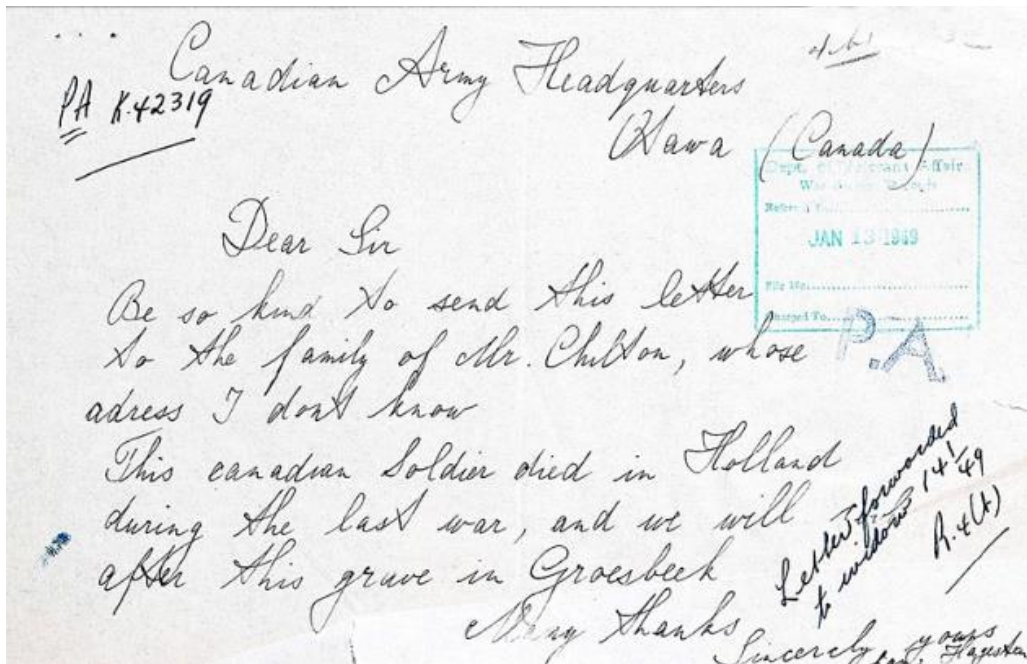 Canadian Army Headquarters
PA K.42319
Ottawa (Canada)
Dept. of Veterans Affairs
JAN 13 1949
File No.
Charged To
P.A
Dear Sir
Be so kind to send this letter
to the family of Mr. Chilton, whose
adress I don't know
This canadian Soldier died in Holland
during the last war, and we will
after this grave in Groesbeek
Many thanks
Sincerely yours
Letter forwarded
to widow 14/1/49
R.4(t)